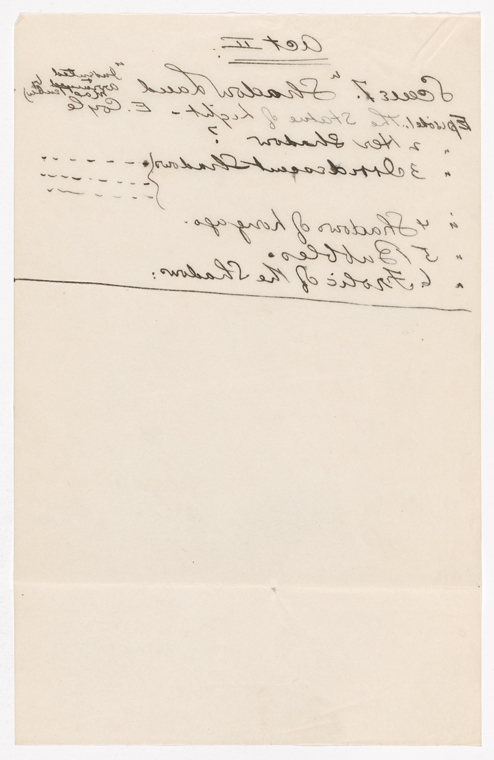 Act II.
Scene 7. "Shadow Land"
"Invented &
arranged by
Episode 1. The Statue of Light - E. Coyle
" 2 Her Shadow ?
" 3 Iridescent Shadows { - - - - -
" 4 Shadows of long ago.
" 5 Bubbles.
" 6 Frolic of the Shadows: